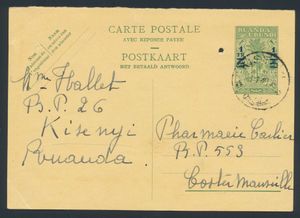 CARTE POSTALE
AVEC RÉPONSE PAYÉE
POSTKAART
MET BETAALD ANTWOORD
RUANDA
URUNDI
1 1
Mme Hallet
B.P. 26
Kisenyi
Ruanda
Pharmacie
B.P. 553
Costermansville